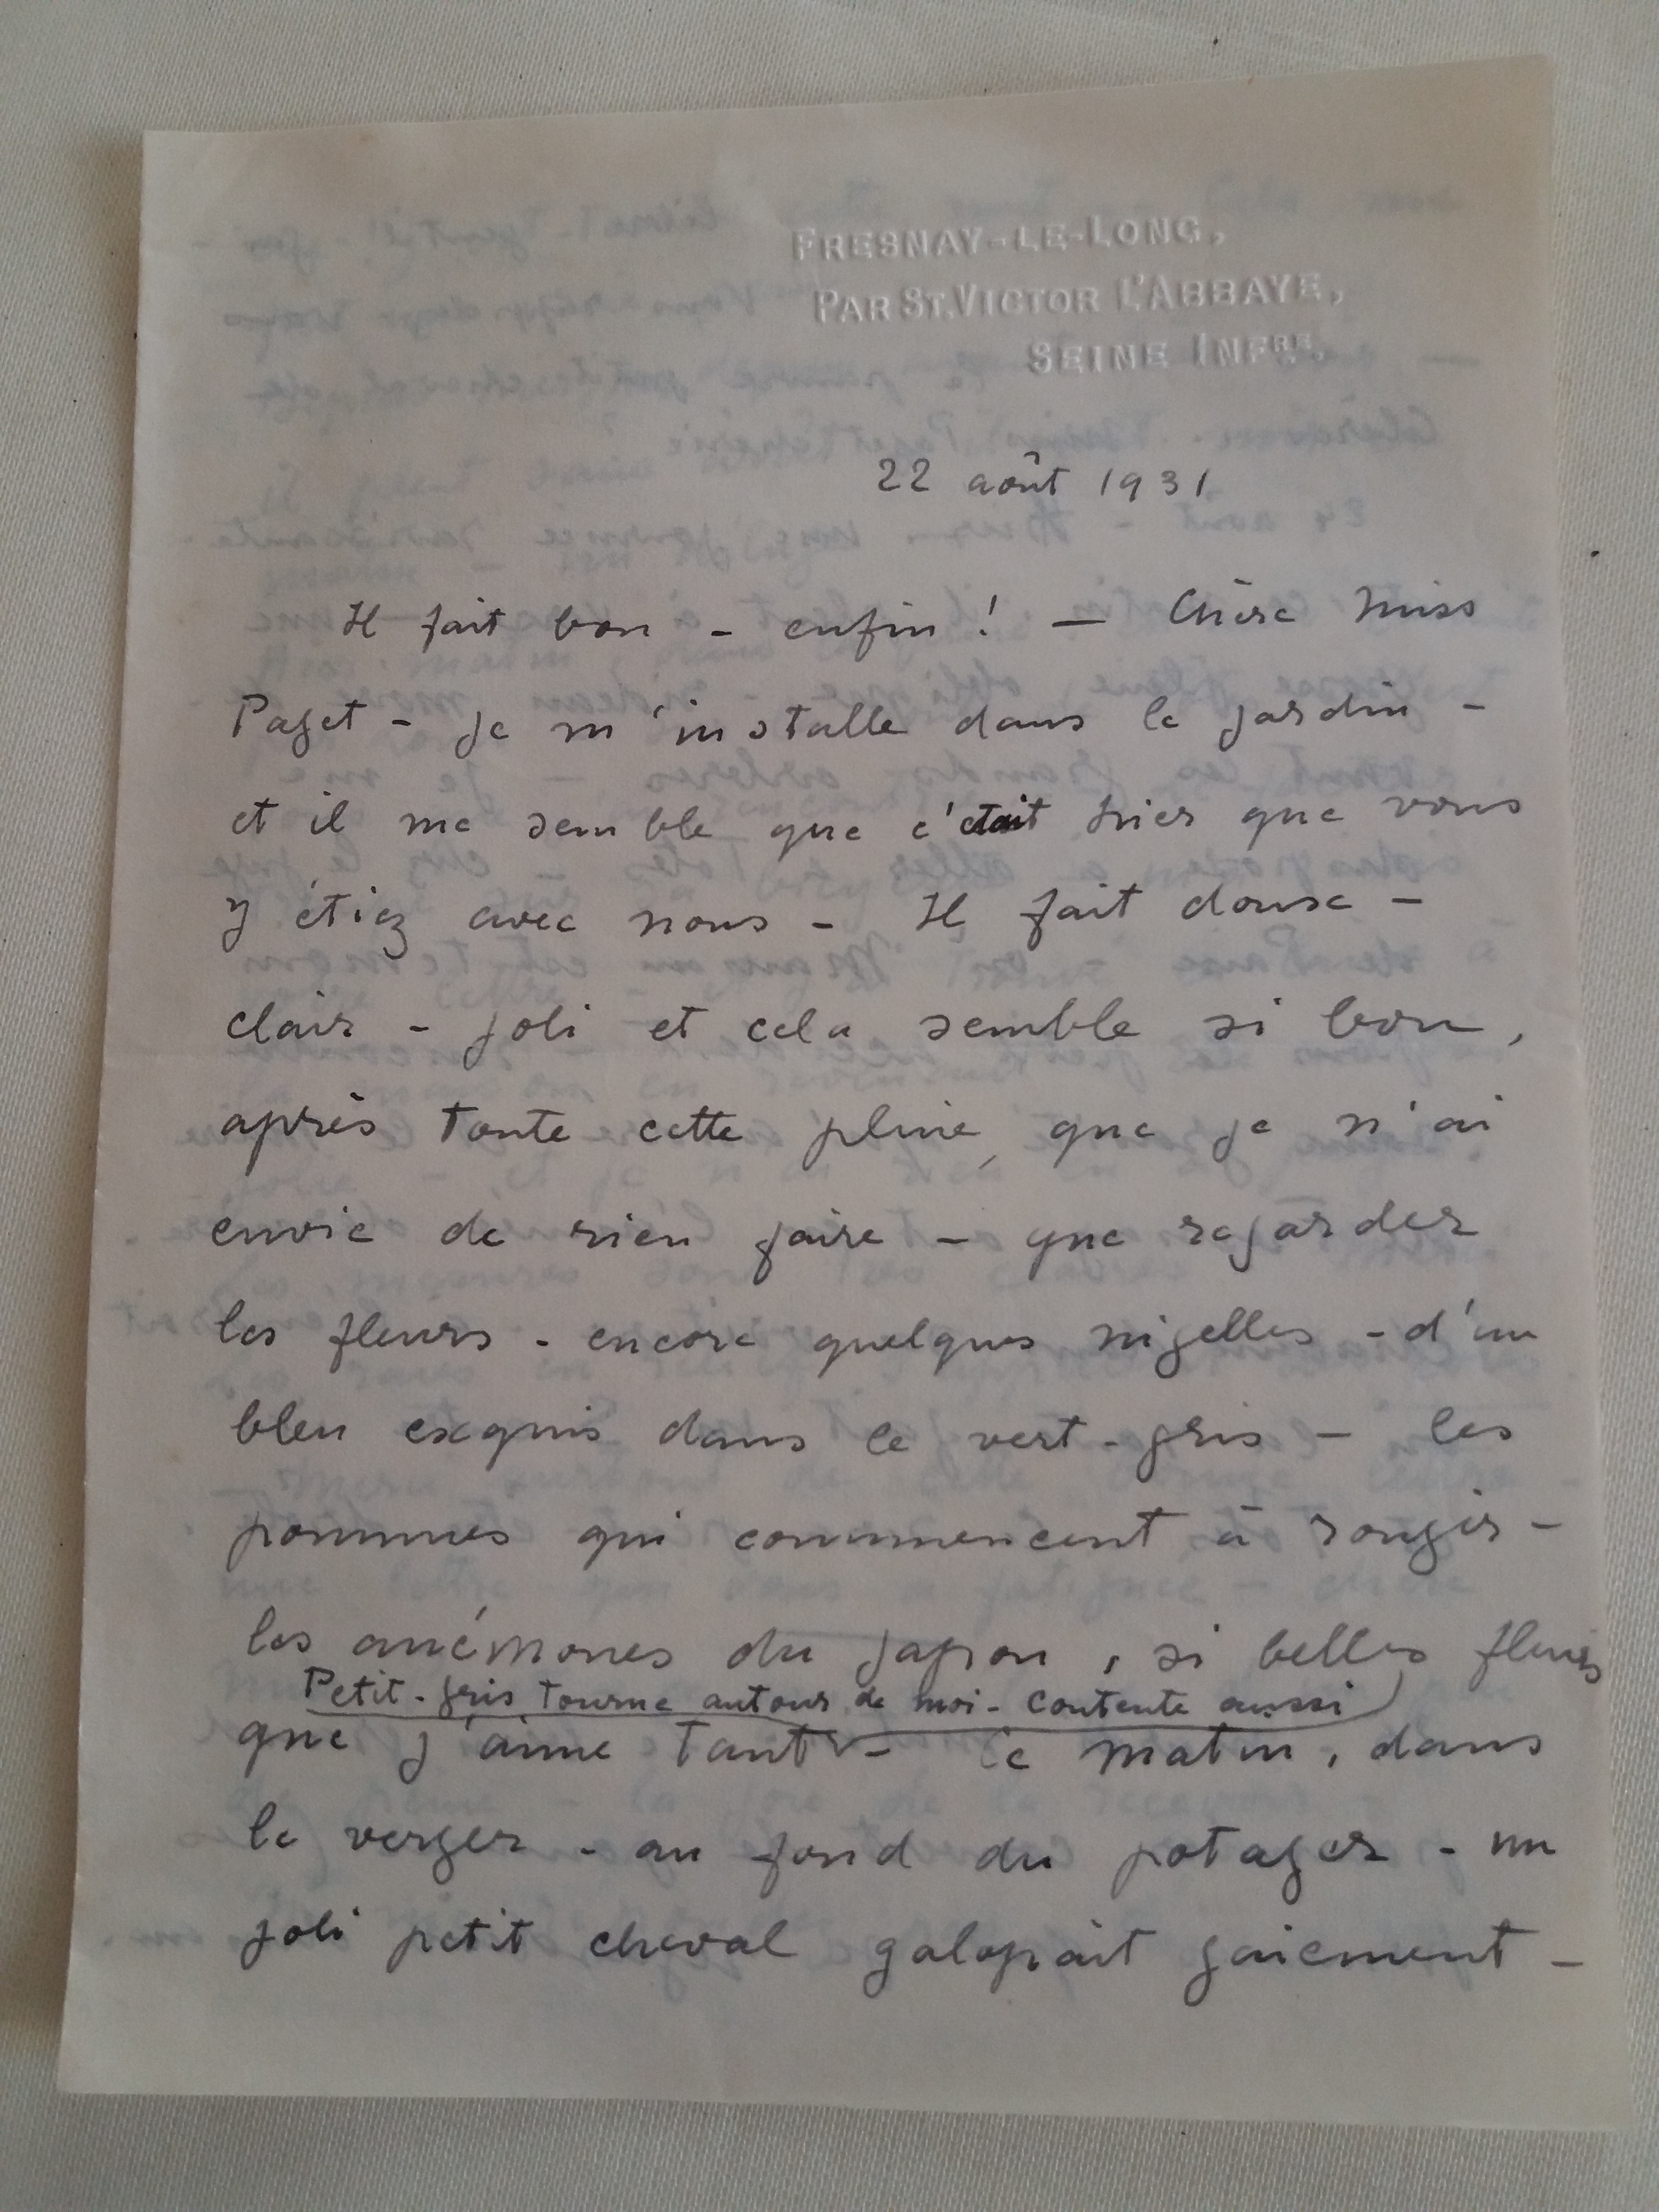 FRESNAY-LE-LONG,
PAR ST. VICTOR L'ABBAYE,
SEINE INFRE.
22 août 1931
Il fait bon - enfin ! — Chère Miss
Paget - je m'installe dans le jardin -
et il me semble que c'était hier que vous
y étiez avec nous - Il fait doux -
clair - joli et cela semble si bon,
après toute cette pluie, que je n'ai
envie de rien faire - que regarder
les fleurs - encore quelques nigelles - d'un
bleu exquis dans le vert-gris - les
pommes qui commencent à rougir -
les anémones du Japon, si belles fleurs
Petit-gris tourne autour de moi - contente aussi
que j'aime tant - Ce matin, dans
le verger - au fond du potager - un
joli petit cheval galopait gaiement -